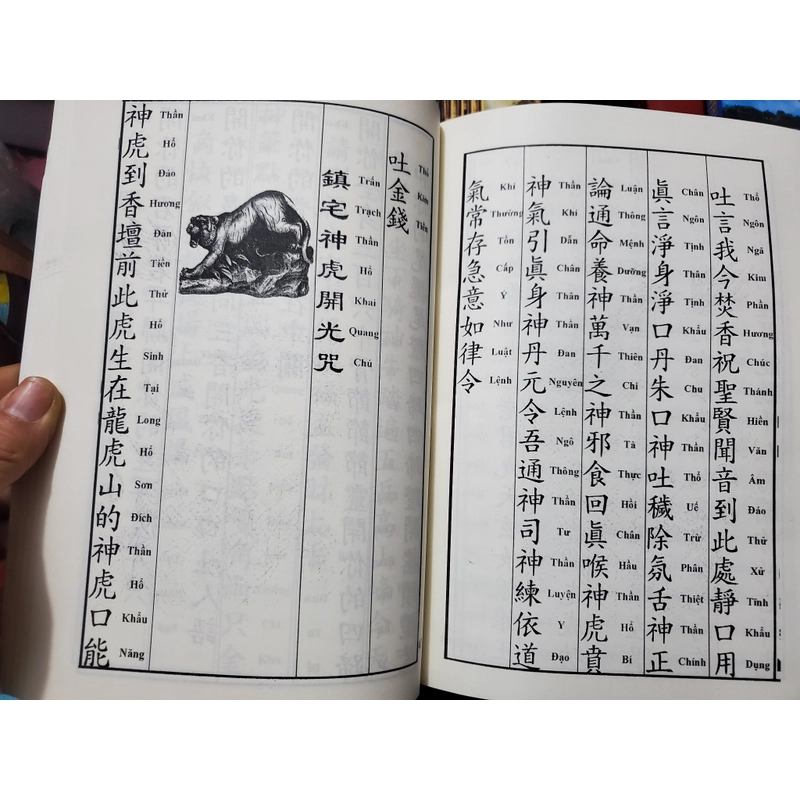 吐言我今焚香祝聖賢聞音到此處靜口用
Thổ Ngôn Ngã Kim Phần Hương Chúc Thánh Hiền Văn Âm Đáo Thử Xử Tĩnh Khẩu Dụng
眞言淨身淨口丹朱口神吐穢除氛舌神正
Chân Ngôn Tịnh Thân Tịnh Khẩu Đan Chu Khẩu Thần Thổ Uế Trừ Phân Thiệt Thần Chính
論通命養神萬千之神邪食回眞喉神虎賁
Luận Thông Mệnh Dưỡng Thần Vạn Thiên Chi Thần Tà Thực Hồi Chân Hầu Thần Hổ Bí
神氣引眞身神丹元令吾通神司神練依道
Thần Khí Dẫn Chân Thân Thần Đan Nguyên Lệnh Ngô Thông Thần Tư Thần Luyện Y Đạo
氣常存急意如律令
Khí Thường Tồn Cấp Ý Như Luật Lệnh
吐金錢
Thổ Kim Tiền
鎮宅神虎開光咒
Trấn Trạch Thần Hổ Khai Quang Chú
神虎到香壇前此虎生在龍虎山的神虎口能
Thần Hổ Đáo Hương Đàn Tiền Thử Hổ Sinh Tại Long Hổ Sơn Đích Thần Hổ Khẩu Năng